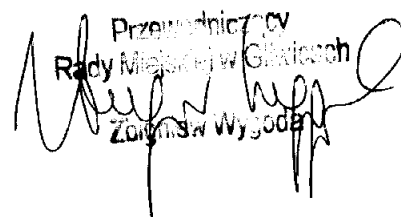 Przewodniczący
Rady Miejskiej w Gliwicach
Zbigniew Wygoda